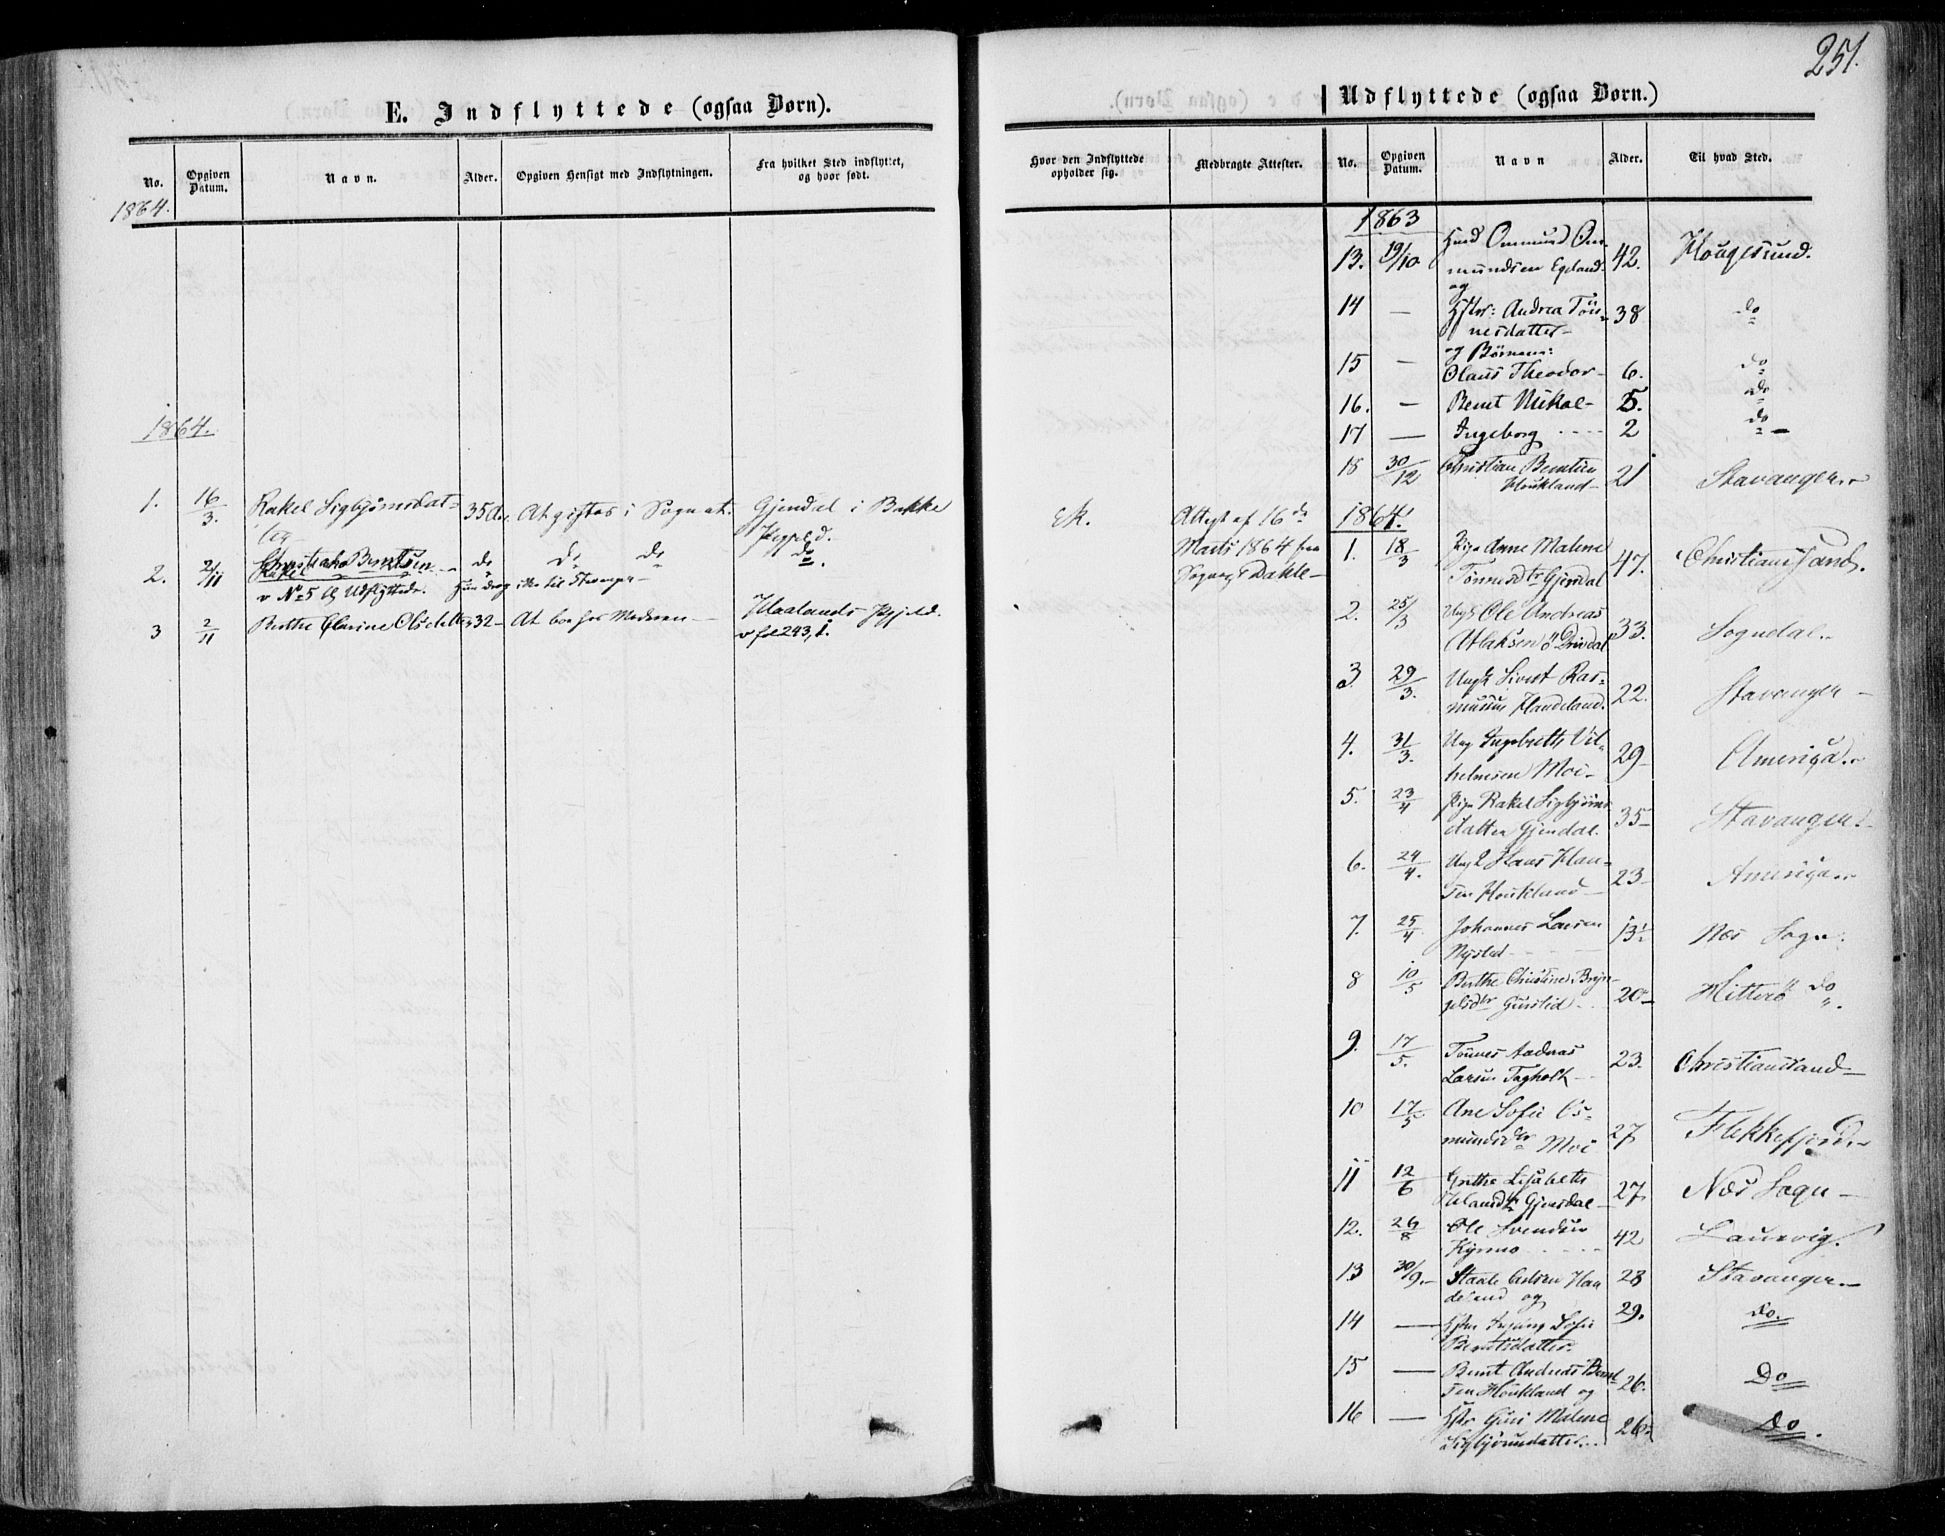 E. Indflyttede (ogsaa Børn).
No.
Opgiven Datum.
Navn.
Alder.
Opgiven Hensigt med Indflytningen.
Fra hvilket Sted indflyttet, og hvor født.
1864.
1864.
1. 16/3. Rakel Sigbjørnsdat- 35 At giftes i Sognet. Gjendal i Bakke
Præstegjeld.
2. 2/11 Christiane Berntsen do do do do.
v No 5 Udflyttede. drog ikke til Stavanger
3 2/11 Berthe Olsdatter 32 At boe hos Moderen Haalands Prgjeld.
v fol 243, 1.
251.
Udflyttede (ogsaa Børn.)
Hvor den Indflyttede opholder sig.
Medbragte Attester.
No.
Opgiven Datum.
Navn
Alder.
Til hvad Sted.
Attest af 16de
Marts 1864 fra
1863
13. 19/10 Ommund Om-
mundsen Egeland 42. Hougesund.
og
14 — Hstr: Andrea Tön-
nesdatter 38 do
og Børnene:
15 — Olaus Theodor 6. do
16. — Bernt Mikal 5. do
17 — Ingeborg 2 do
18 30/12 Christian Berntsen
Houkland 21 Stavanger
1864.
1. 18/3 Pige Anne Malene
Tønnesdtr Gjendal 47. Christiansand.
2. 25/3 Ungk Ole Andreas
Atlaksen Drivdal 33. Sogndal.
3. 29/3. Ungk Sivert Ras-
musen Handeland. 22. Stavanger
4. 31/3. Ung Ingebreth Vil-
helmsen Moi 29 Ameriga.
5. 23/4 Pige Rakel Sigbjørns-
datter Gjendal. 35 Stavanger
6. 24/4. Ungk Hans Han-
sen Houkland 23 Ameriga
7. 25/4. Johannes Larsen
Nysted 13½ Nes Sogn.
8 10/5 Berthe Christine Bryn-
gelsdtr Gursted 20 Hitterö do
9. 17/5. Tønnes Andreas
Larsen 23. Christiansand
10 17/5 Ane Sofie Os-
mundsdtr Moi 27 Flekkefjord
11 12/6 Grethe Lisabeth
Gjendal 27 Nes Sogn
12. 26/8 Ole Svendsen
42 Laurvig.
13 30/9. Staale Han-
deland og 28 Stavanger
14 — Hstr Sofie
Berntsdatter. 29. do.
15 — Bernt Andreas Bernt-
sen Houkland og 26. Do
16 — Hstr Guri Malene
Sigbjørnsdatter 26 Do.